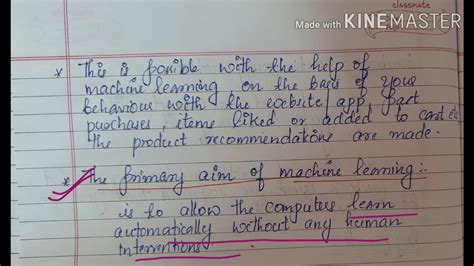 classmate
Made with KINEMASTER
* This is possible with the help of
machine learning on the basis of your
behaviour with the website/app, past
purchases, items liked or added to cart &
the product recommendations are made.
* The primary aim of machine learning :-
is to allow the computers learn
automatically without any human
interventions.